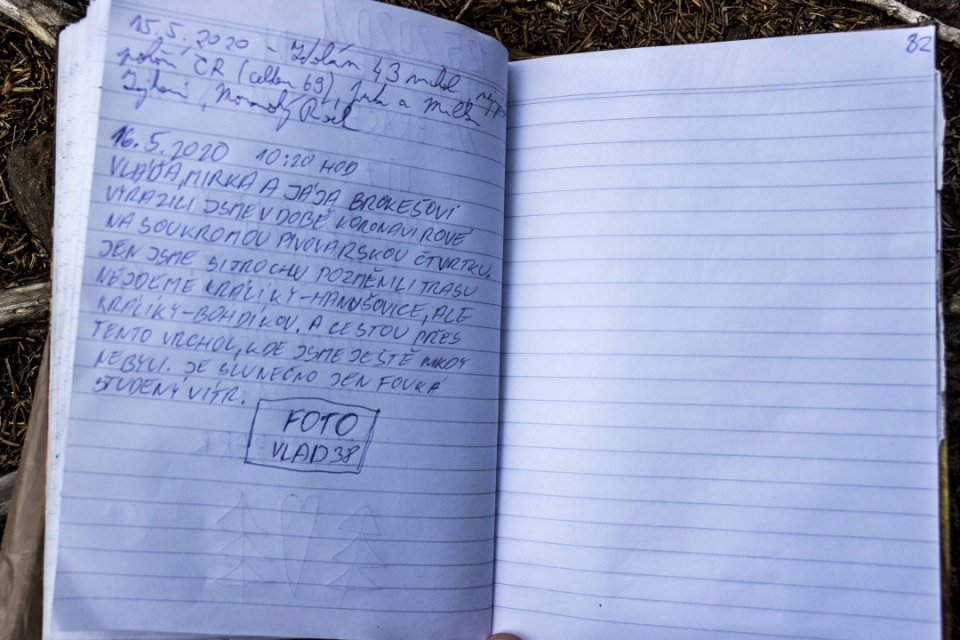 15.5.2020 - Zdolán 43 vrchol
pohoří ČR (celkem 69), a
16.5.2020 10:20 HOD
VLÁĎA, MIRKA A JÁJA BROKEŠOVI
VYRAZILI JSME V DOBĚ KORONAVIROVÉ
NA SOUKROMOU PIVOVARSKOU ČTVRTKU.
JEN JSME SI TROCHU POZMĚNILI TRASU
NEJDEME KRÁLÍKY-HANUŠOVICE, ALE
KRÁLÍKY-BOHDÍKOV. A CESTOU PŘES
TENTO VRCHOL, KDE JSME JEŠTĚ NIKDY
NEBYLI. JE SLUNEČNO JEN FOUKÁ
STUDENÝ VÍTR.
FOTO
VLAD38
82